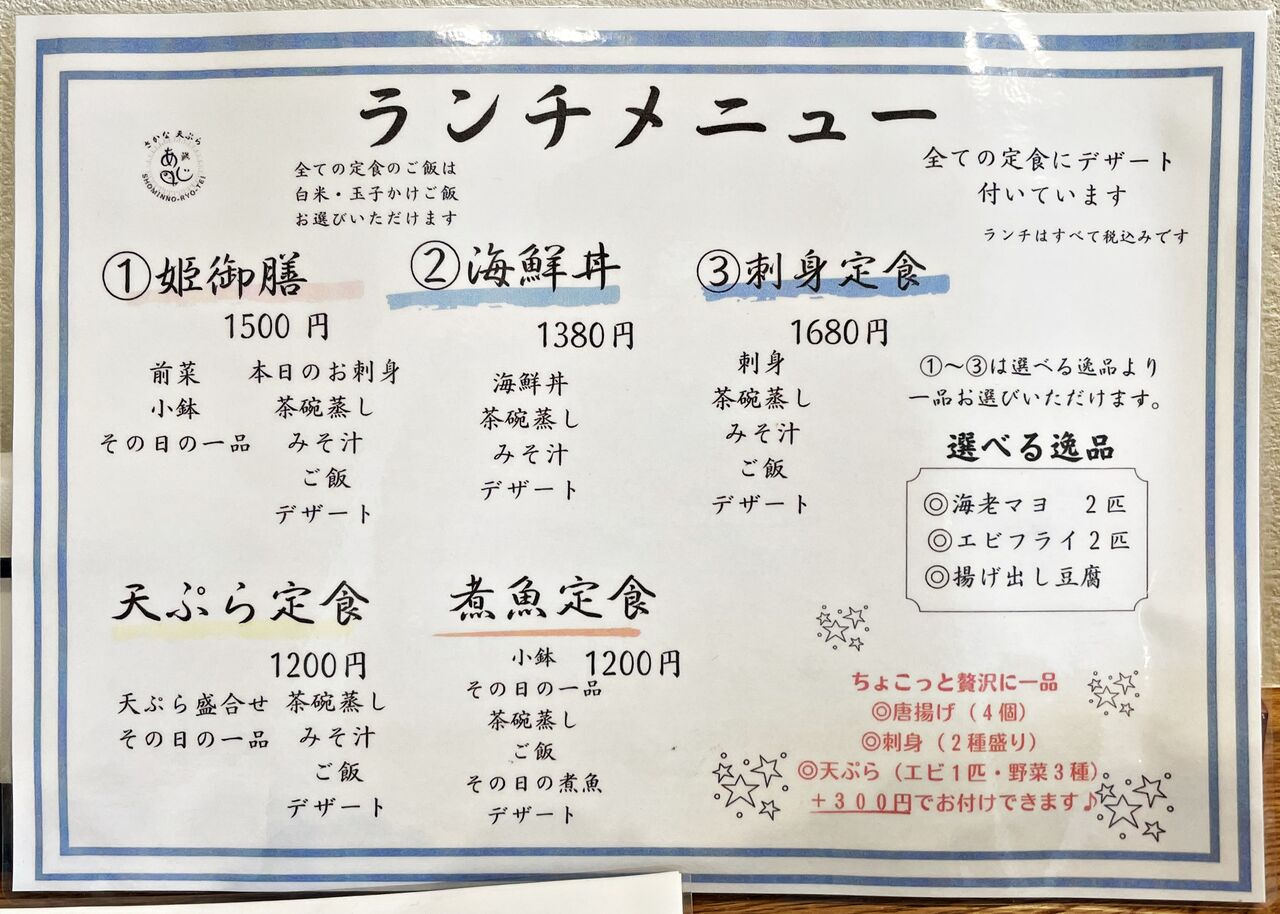 ランチメニュー
さかな 天ぷら
SHOMINNO-RYO-TEI
全ての定食のご飯は
白米・玉子かけご飯
お選びいただけます
全ての定食にデザート
付いています
ランチはすべて税込みです
①姫御膳
1500 円
前菜
小鉢
その日の一品
本日のお刺身
茶碗蒸し
みそ汁
ご飯
デザート
②海鮮丼
1380円
海鮮丼
茶碗蒸し
みそ汁
デザート
③刺身定食
1680円
刺身
茶碗蒸し
みそ汁
ご飯
デザート
①〜③は選べる逸品より
一品お選びいただけます。
選べる逸品
◎海老マヨ 2匹
◎エビフライ2匹
◎揚げ出し豆腐
天ぷら定食
1200円
天ぷら盛合せ
その日の一品
茶碗蒸し
みそ汁
ご飯
デザート
煮魚定食
1200円
小鉢
その日の一品
茶碗蒸し
ご飯
その日の煮魚
デザート
ちょこっと贅沢に一品
◎唐揚げ（4個）
◎刺身（2種盛り）
◎天ぷら（エビ1匹・野菜3種）
＋300円でお付けできます♪